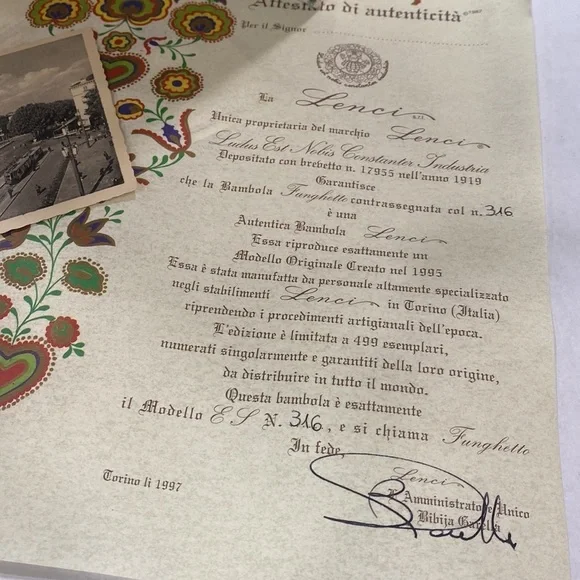 Attestato di autenticità
Per il Signor
La Lenci
Unica proprietaria del marchio Lenci
Ludus Est Nobis Constanter Industria
Depositato con brevetto n. 17955 nell'anno 1919
Garantisce
che la Bambola Funghetto contrassegnata col n. 316
è una
Autentica Bambola Lenci
Essa riproduce esattamente un
Modello Originale Creato nel 1995
Essa è stata manufatta da personale altamente specializzato
negli stabilimenti Lenci in Torino (Italia)
riprendendo i procedimenti artigianali dell'epoca.
L'edizione è limitata a 499 esemplari,
numerati singolarmente e garantiti della loro origine,
da distribuire in tutto il mondo.
Questa bambola è esattamente
il Modello E S N. 316, e si chiama Funghetto
In fede,
Lenci
L'Amministratore Unico
Bibija Garella
Torino lì 1997